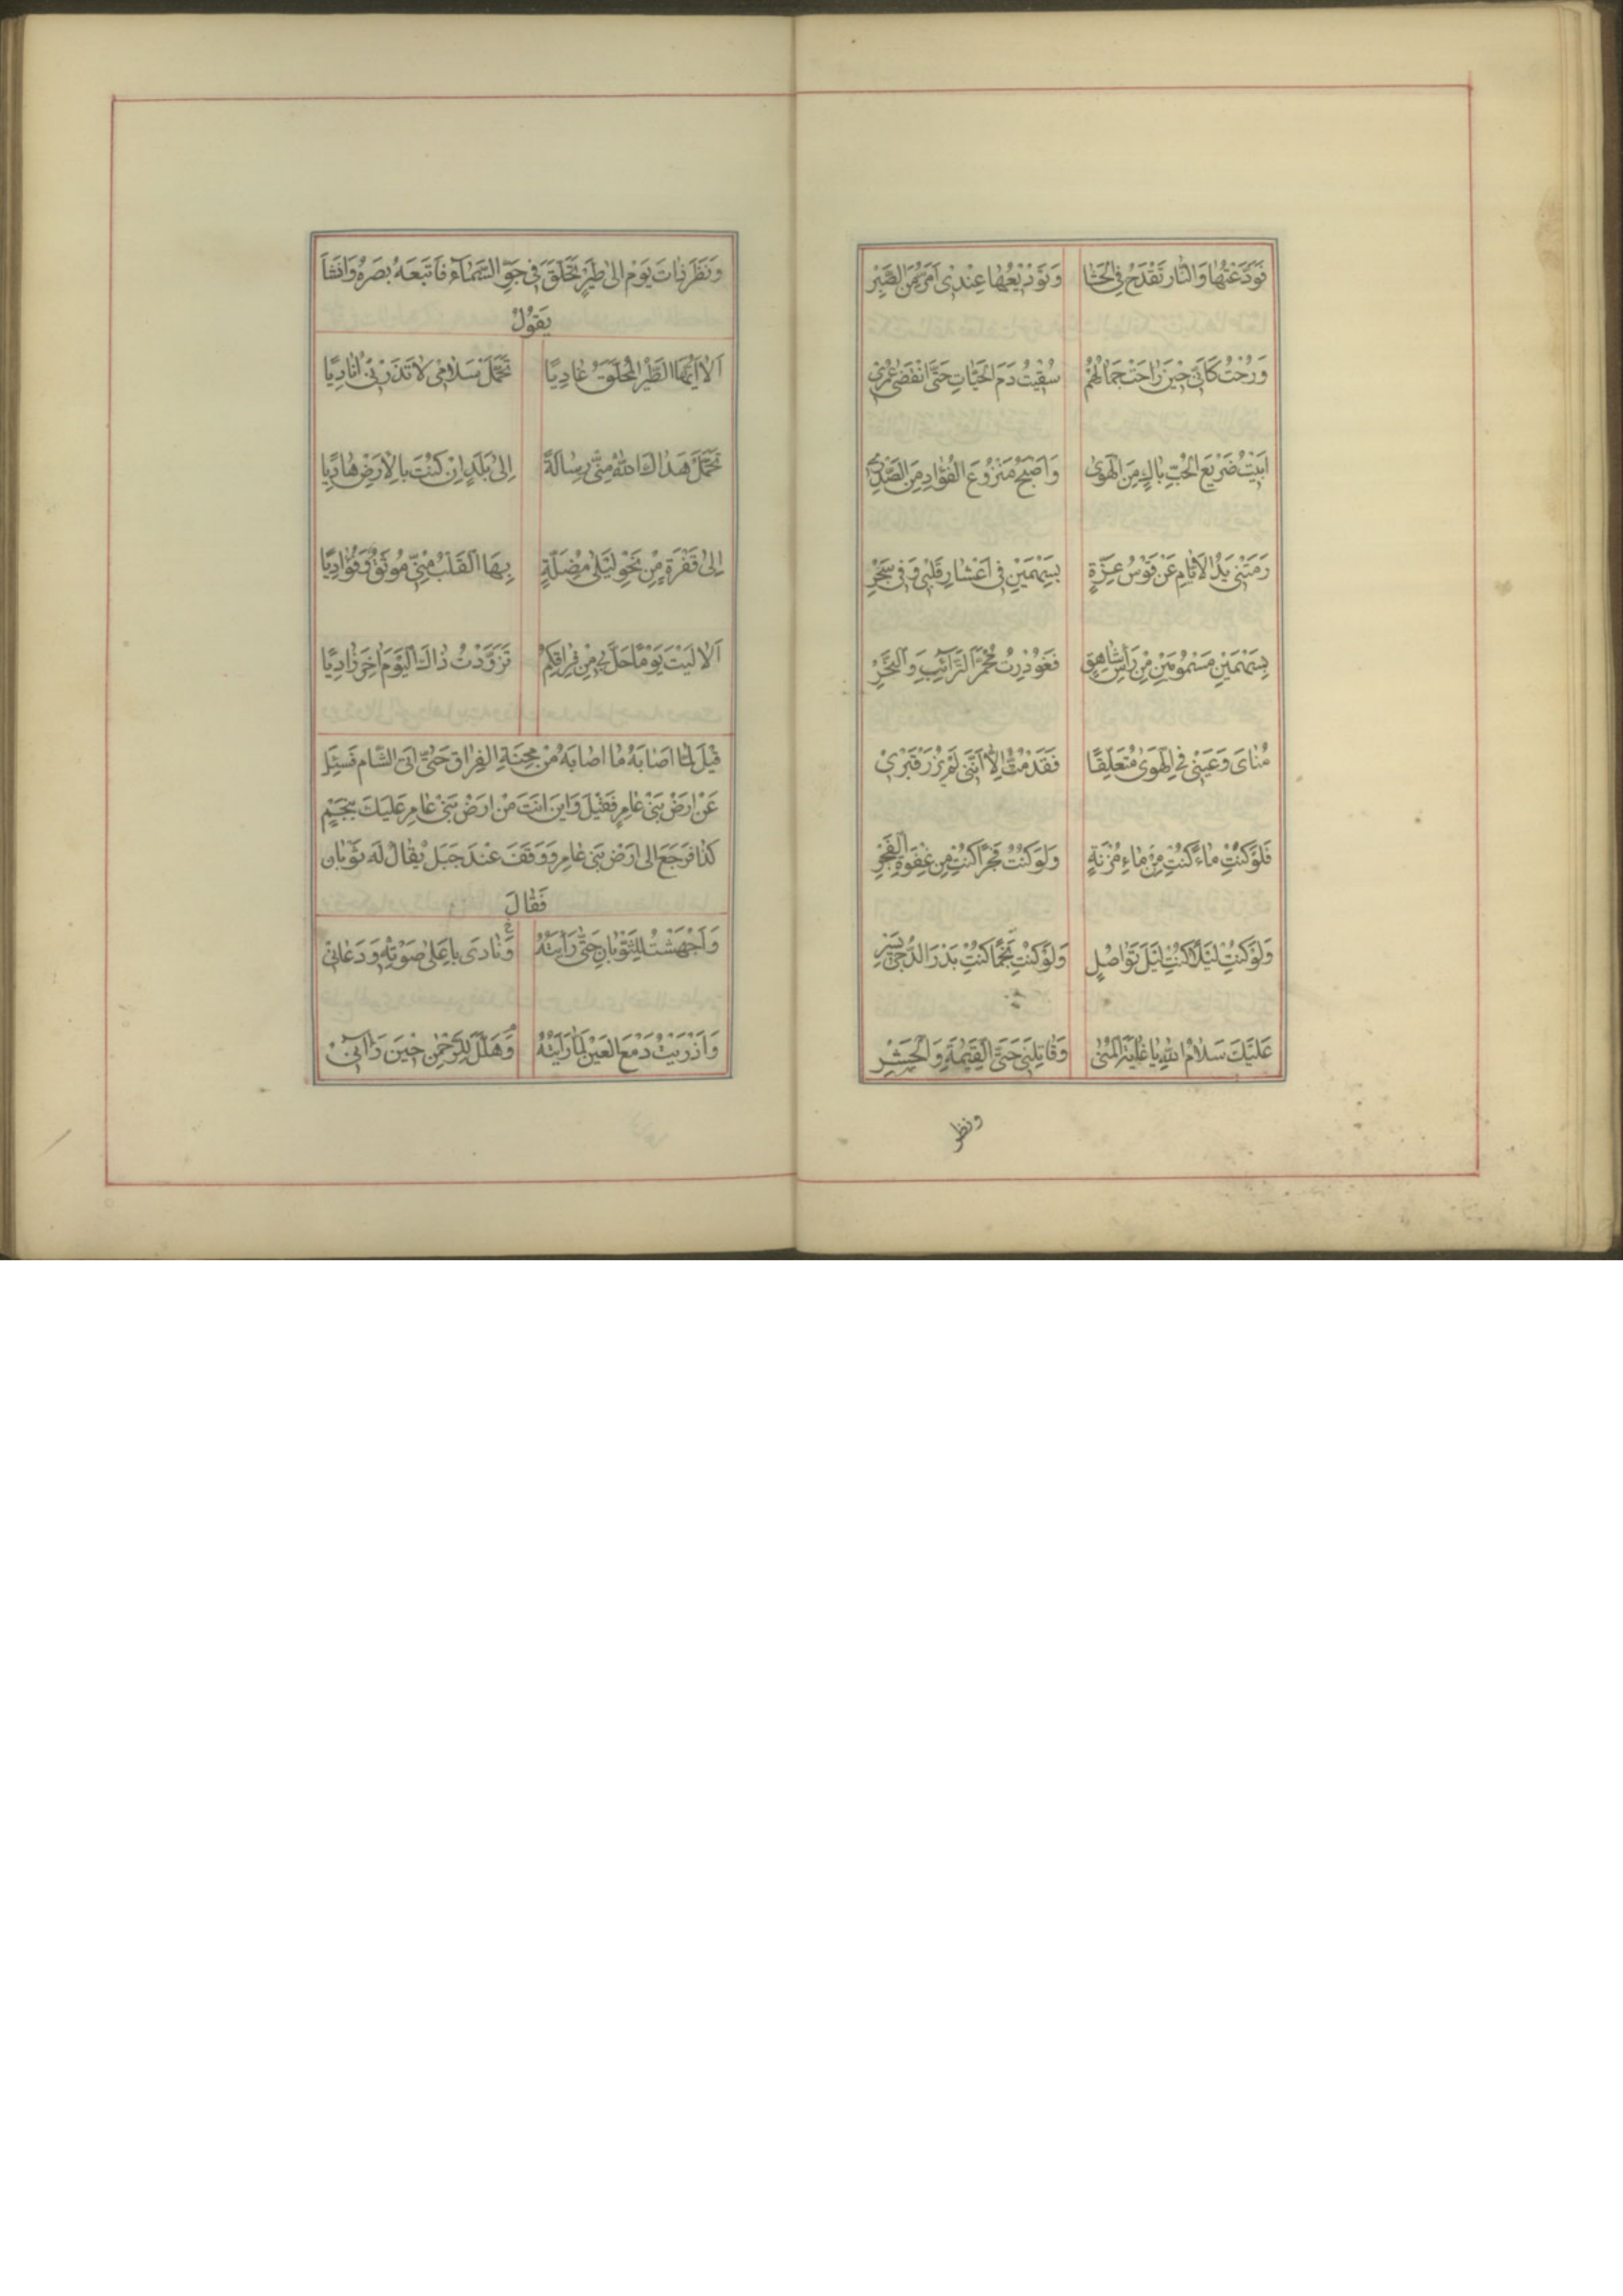 فَوَدَّعْتُهَا وَالنَّارُ تَقْدَحُ فِي الْحَشَا وَتَوْدِيْعُهَا عِنْدِي أَمَرُّ مِنَ الصَّبْرِ
وَرُحْتُ كَأَنِّي حِيْنَ رَاحَتْ جِمَالُهُمْ سُقِيْتُ دَمَ الْحَيَّاتِ حَتَّى انْقَضَى عُمْرِي
اَبِيْتُ صَرِيْعَ الْحُبِّ بَاكٍ مِنَ الْهَوٰى وَاَصْبَحُ مَنْزُوْعَ الْفُؤَادِ مِنَ الصَّدْرِ
رَمَتْنِي يَدُ الْاَيَّامِ عَنْ قَوْسِ عِزَّةٍ بِسَهْمَيْنِ فِي اَعْشَارِ قَلْبِي وَفِي سَحْرِ
بِسَهْمَيْنِ مَسْمُوْمَيْنِ مِنْ رَأْسِ شَاهِقٍ فَغُوْدِرْتُ مُحْمَرَّ التَّرَائِبِ وَالنَّحْرِ
مُنَايَ دَعِيْنِي فِي الْهَوٰى مُتَعَلِّقًا فَقَدْ مُتُّ اِلَّا اَنَّنِي لَمْ يُزَرْ قَبْرِي
فَلَوْ كُنْتِ مَاءً كُنْتِ مِنْ مَاءِ مُزْنَةٍ وَلَوْ كُنْتِ فَجْرًا كُنْتِ مِنْ غَفْوَةِ الْفَجْرِ
وَلَوْ كُنْتِ لَيْلًا كُنْتِ لَيْلَ تَوَاصُلٍ وَلَوْ كُنْتِ نَجْمًا كُنْتِ بَدْرَ الدُّجٰى يَسْرِ
عَلَيْكَ سَلَامُ اللهِ يَا غَايَةَ الْمُنٰى وَقَاتِلَتِي حَتَّى الْقِيٰمَةِ وَالْحَشْرِ
ونظر
وَنَظَرَ ذَاتَ يَوْمٍ اِلٰى طَيْرٍ تَحَلَّقَ فِي جَوِّ السَّمَاءِ فَاَتْبَعَهُ بَصَرَهُ وَاَنْشَاَ
يَقُوْلُ
اَلَا اَيُّهَا الطَّيْرُ الْمُحَلِّقُ غَادِيًا تَحَمَّلْ سَلَامِي لَا تَذَرْنِي اُنَادِيَا
تَحَمَّلْ هَدَاكَ اللهُ مِنِّي رِسَالَةً اِلٰى بَلَدٍ اِنْ كُنْتَ بِالْاَرْضِ هَادِيَا
اِلٰى قَفْرَةٍ مِنْ نَحْوِ لَيْلٰى مُضِلَّةٍ بِهَا الْقَلْبُ مِنِّي مُوْثَقٌ وَفُؤَادِيَا
اَلَا لَيْتَ يَوْمًا حَلَّ بِي مِنْ فِرَاقِكُمْ تَزَوَّدْتُ ذَاكَ الْيَوْمَ اٰخِرَ زَادِيَا
قِيْلَ لَمَّا اَصَابَهُ مَا اَصَابَهُ مِنْ مِحْنَةِ الْفِرَاقِ حَتّٰى اَتَى الشَّامَ فَسَئَلَ
عَنْ اَرْضِ بَنِي عَامِرٍ فَقِيْلَ وَاَيْنَ اَنْتَ مِنْ اَرْضِ بَنِي عَامِرٍ عَلَيْكَ بِنَجْمٍ
كَذَا فَرَجَعَ اِلٰى اَرْضِ بَنِي عَامِرٍ وَوَقَفَ عِنْدَ جَبَلٍ يُقَالُ لَهُ ثَوْبَان
فَقَالَ
وَاَجْهَشْتُ لِلثَّوْبَانِ حَتّٰى رَاَيْتُهُ وَنَادٰى بِاَعْلٰى صَوْتِهِ وَدَعَانِي
وَاَذْرَيْتُ دَمْعَ الْعَيْنِ لَمَّا رَاَيْتُهُ وَهَلَّلَ لِلرَّحْمٰنِ حِيْنَ رَاٰنِي